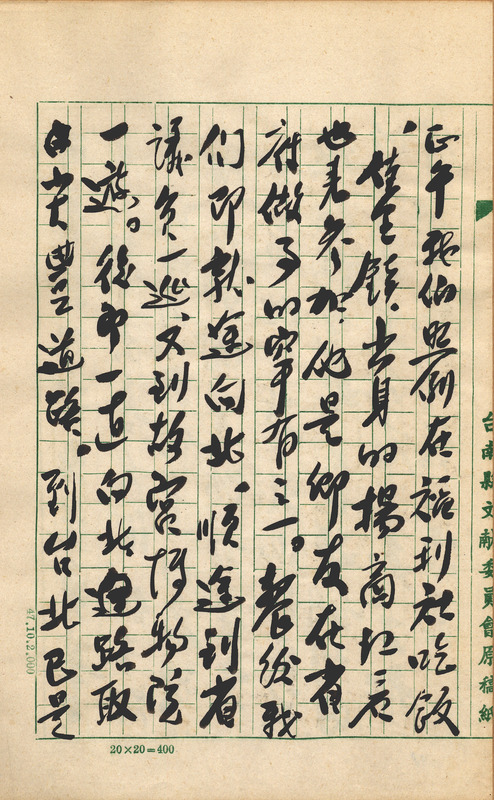 台南縣文献委員會原稿紙
正午我們照例在福利社吃飯
，佳里鎮出身的楊商江君
也來參加，他是鄉友在省
府做事的罕有之一。餐後我
們即就途向北，順途到省
議會一逛，又到故宮博物院
一遊。後即一直向北進路取
由尖豐道路。到台北已是
47.10.2,000
20×20=400